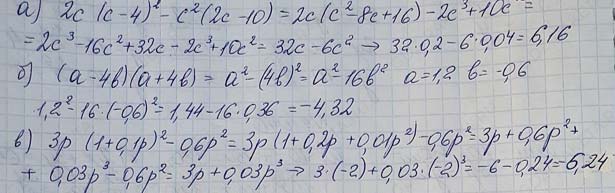 а) 2c (c-4)² - c² (2c-10) = 2c (c² - 8c + 16) - 2c³ + 10c² =
= 2c³ - 16c² + 32c - 2c³ + 10c² = 32c - 6c² → 32·0,2 - 6·0,04 = 6,16
б) (a-4b)(a+4b) = a² - (4b)² = a² - 16b² a = 1,2 b = -0,6
1,2² - 16·(-0,6)² = 1,44 - 16·0,36 = -4,32
в) 3p (1+0,1p)² - 0,6p² = 3p (1+0,2p + 0,01p²) - 0,6p² = 3p + 0,6p² +
+ 0,03p³ - 0,6p² = 3p + 0,03p³ → 3·(-2) + 0,03·(-2)³ = -6 - 0,24 = 6,24